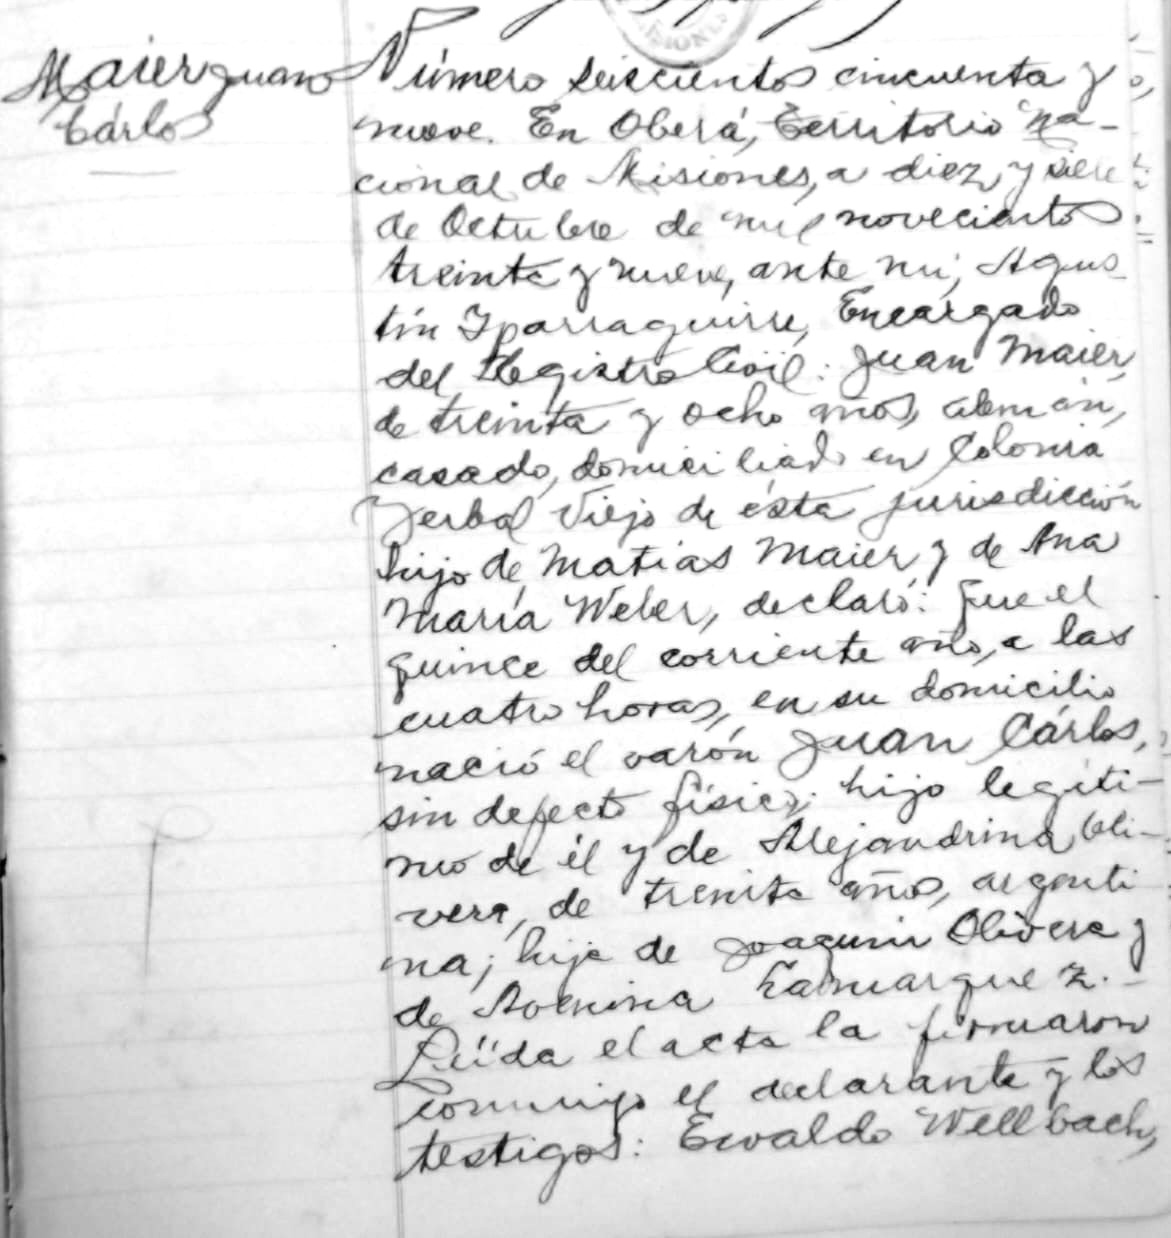 MISIONES
Maier Juan
Cárlos
Número seiscientos cincuenta y
nueve. En Oberá, Territorio Na-
cional de Misiones, a diez y siete
de Octubre de mil novecientos
treinta y nueve, ante mí, Agus-
tín Yparraguirre, Encargado
del Registro Civil: Juan Maier,
de treinta y ocho años, alemán,
casado, domiciliado en Colonia
Yerbal Viejo de ésta jurisdicción
hijo de Matias Maier y de Ana
María Weber, declaró: Que el
quince del corriente año, a las
cuatro horas, en su domicilio
nació el varón Juan Cárlos,
sin defecto físico; hijo legíti-
mo de él y de Alejandrina Oli-
vera, de treinta años, argenti
na; hija de Joaquin Olivera y
de Lamarque
Leída el acta la firmaron
conmigo el declarante y los
testigos: Ewaldo Wellbach,